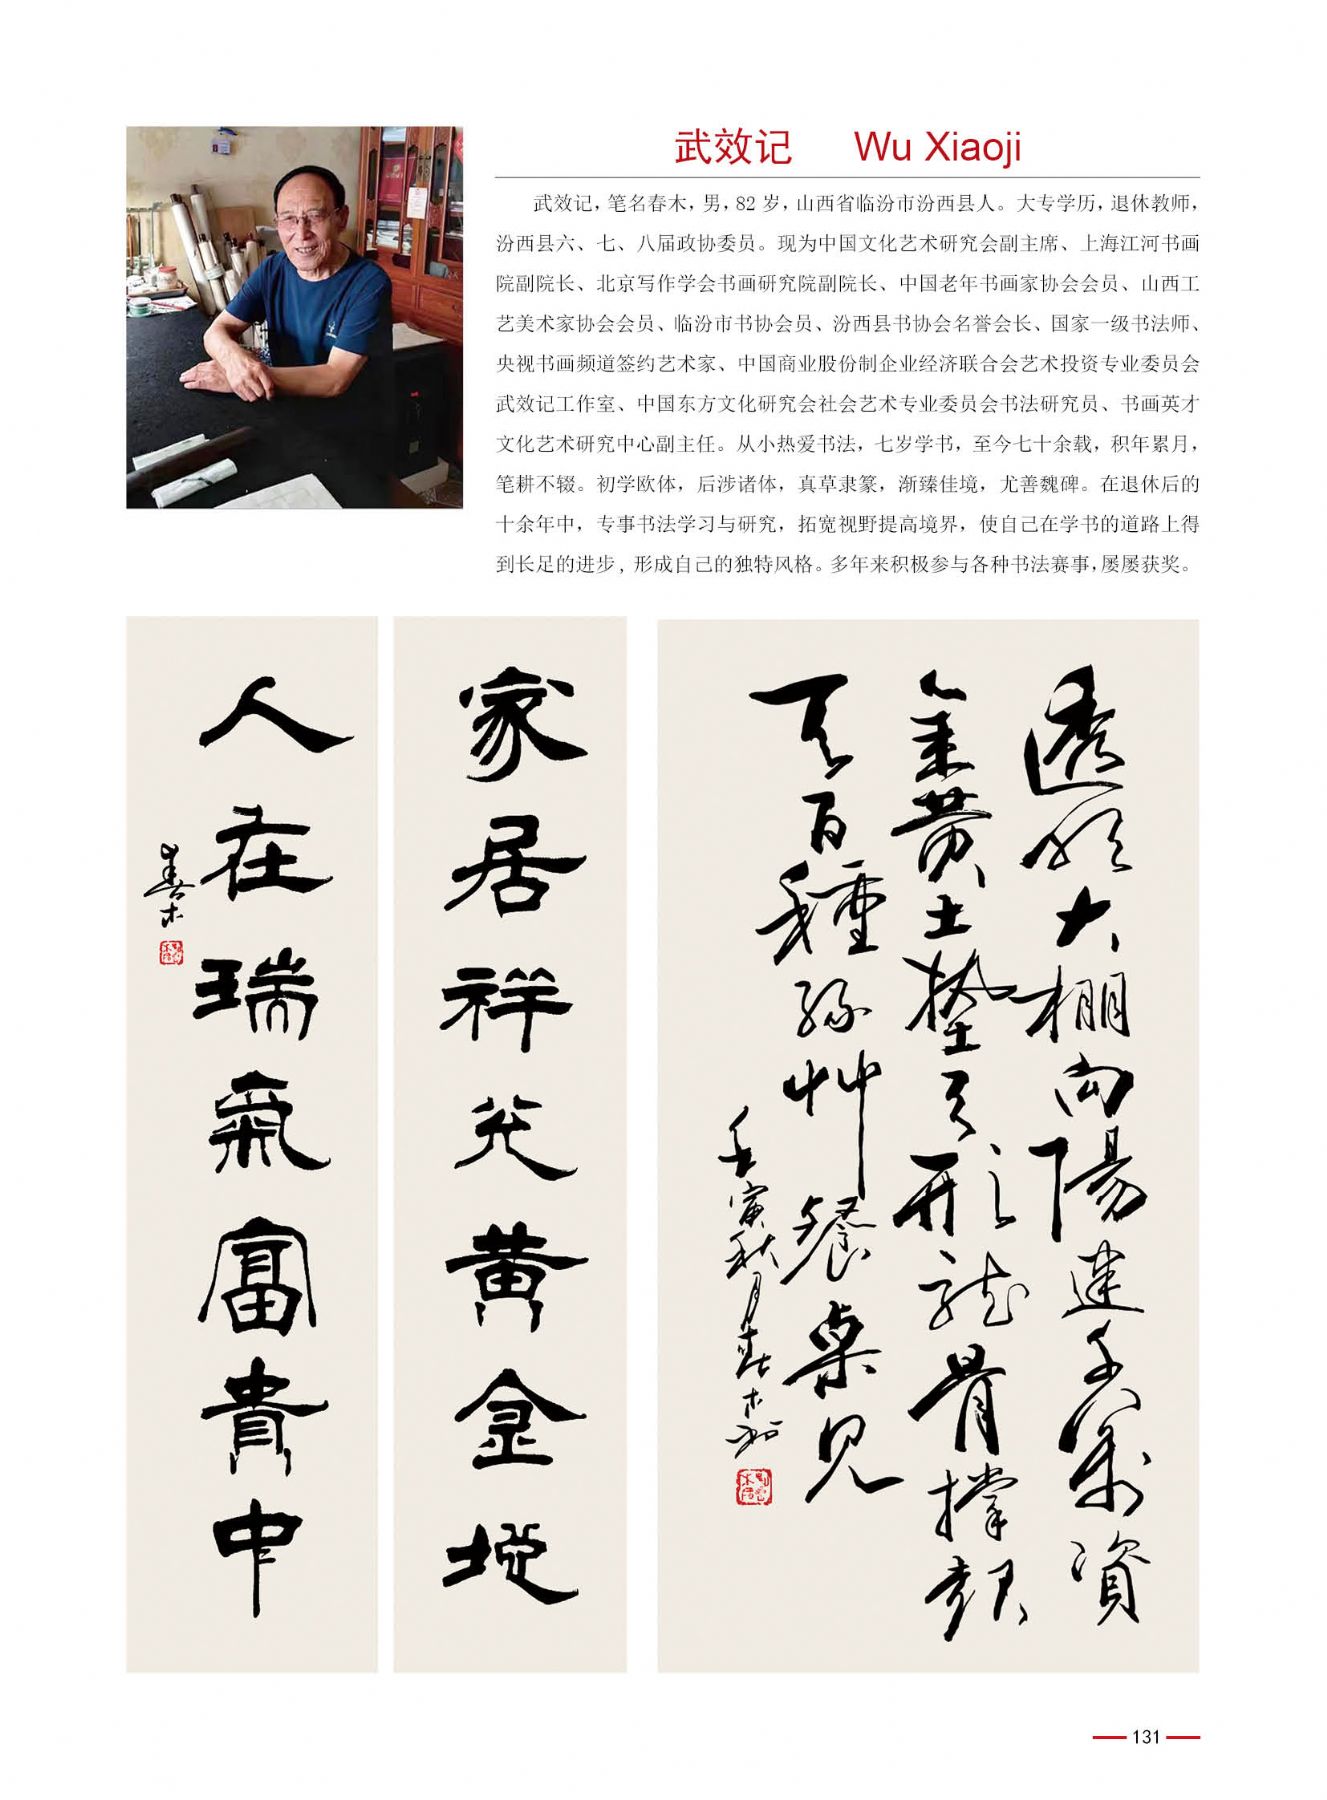 武效记 Wu Xiaoji
武效记，笔名春木，男，82 岁，山西省临汾市汾西县人。大专学历，退休教师，
汾西县六、七、八届政协委员。现为中国文化艺术研究会副主席、上海江河书画
院副院长、北京写作学会书画研究院副院长、中国老年书画家协会会员、山西工
艺美术家协会会员、临汾市书协会员、汾西县书协会名誉会长、国家一级书法师、
央视书画频道签约艺术家、中国商业股份制企业经济联合会艺术投资专业委员会
武效记工作室、中国东方文化研究会社会艺术专业委员会书法研究员、书画英才
文化艺术研究中心副主任。从小热爱书法，七岁学书，至今七十余载，积年累月，
笔耕不辍。初学欧体，后涉诸体，真草隶篆，渐臻佳境，尤善魏碑。在退休后的
十余年中，专事书法学习与研究，拓宽视野提高境界，使自己在学书的道路上得
到长足的进步，形成自己的独特风格。多年来积极参与各种书法赛事，屡屡获奖。
家居祥光黄金地
人在瑞氣富貴中
春木
透明大棚向陽建千萬資
金黄土墊之形龍骨撐起
天百種綠艸餐桌見
壬寅秋月春木
131